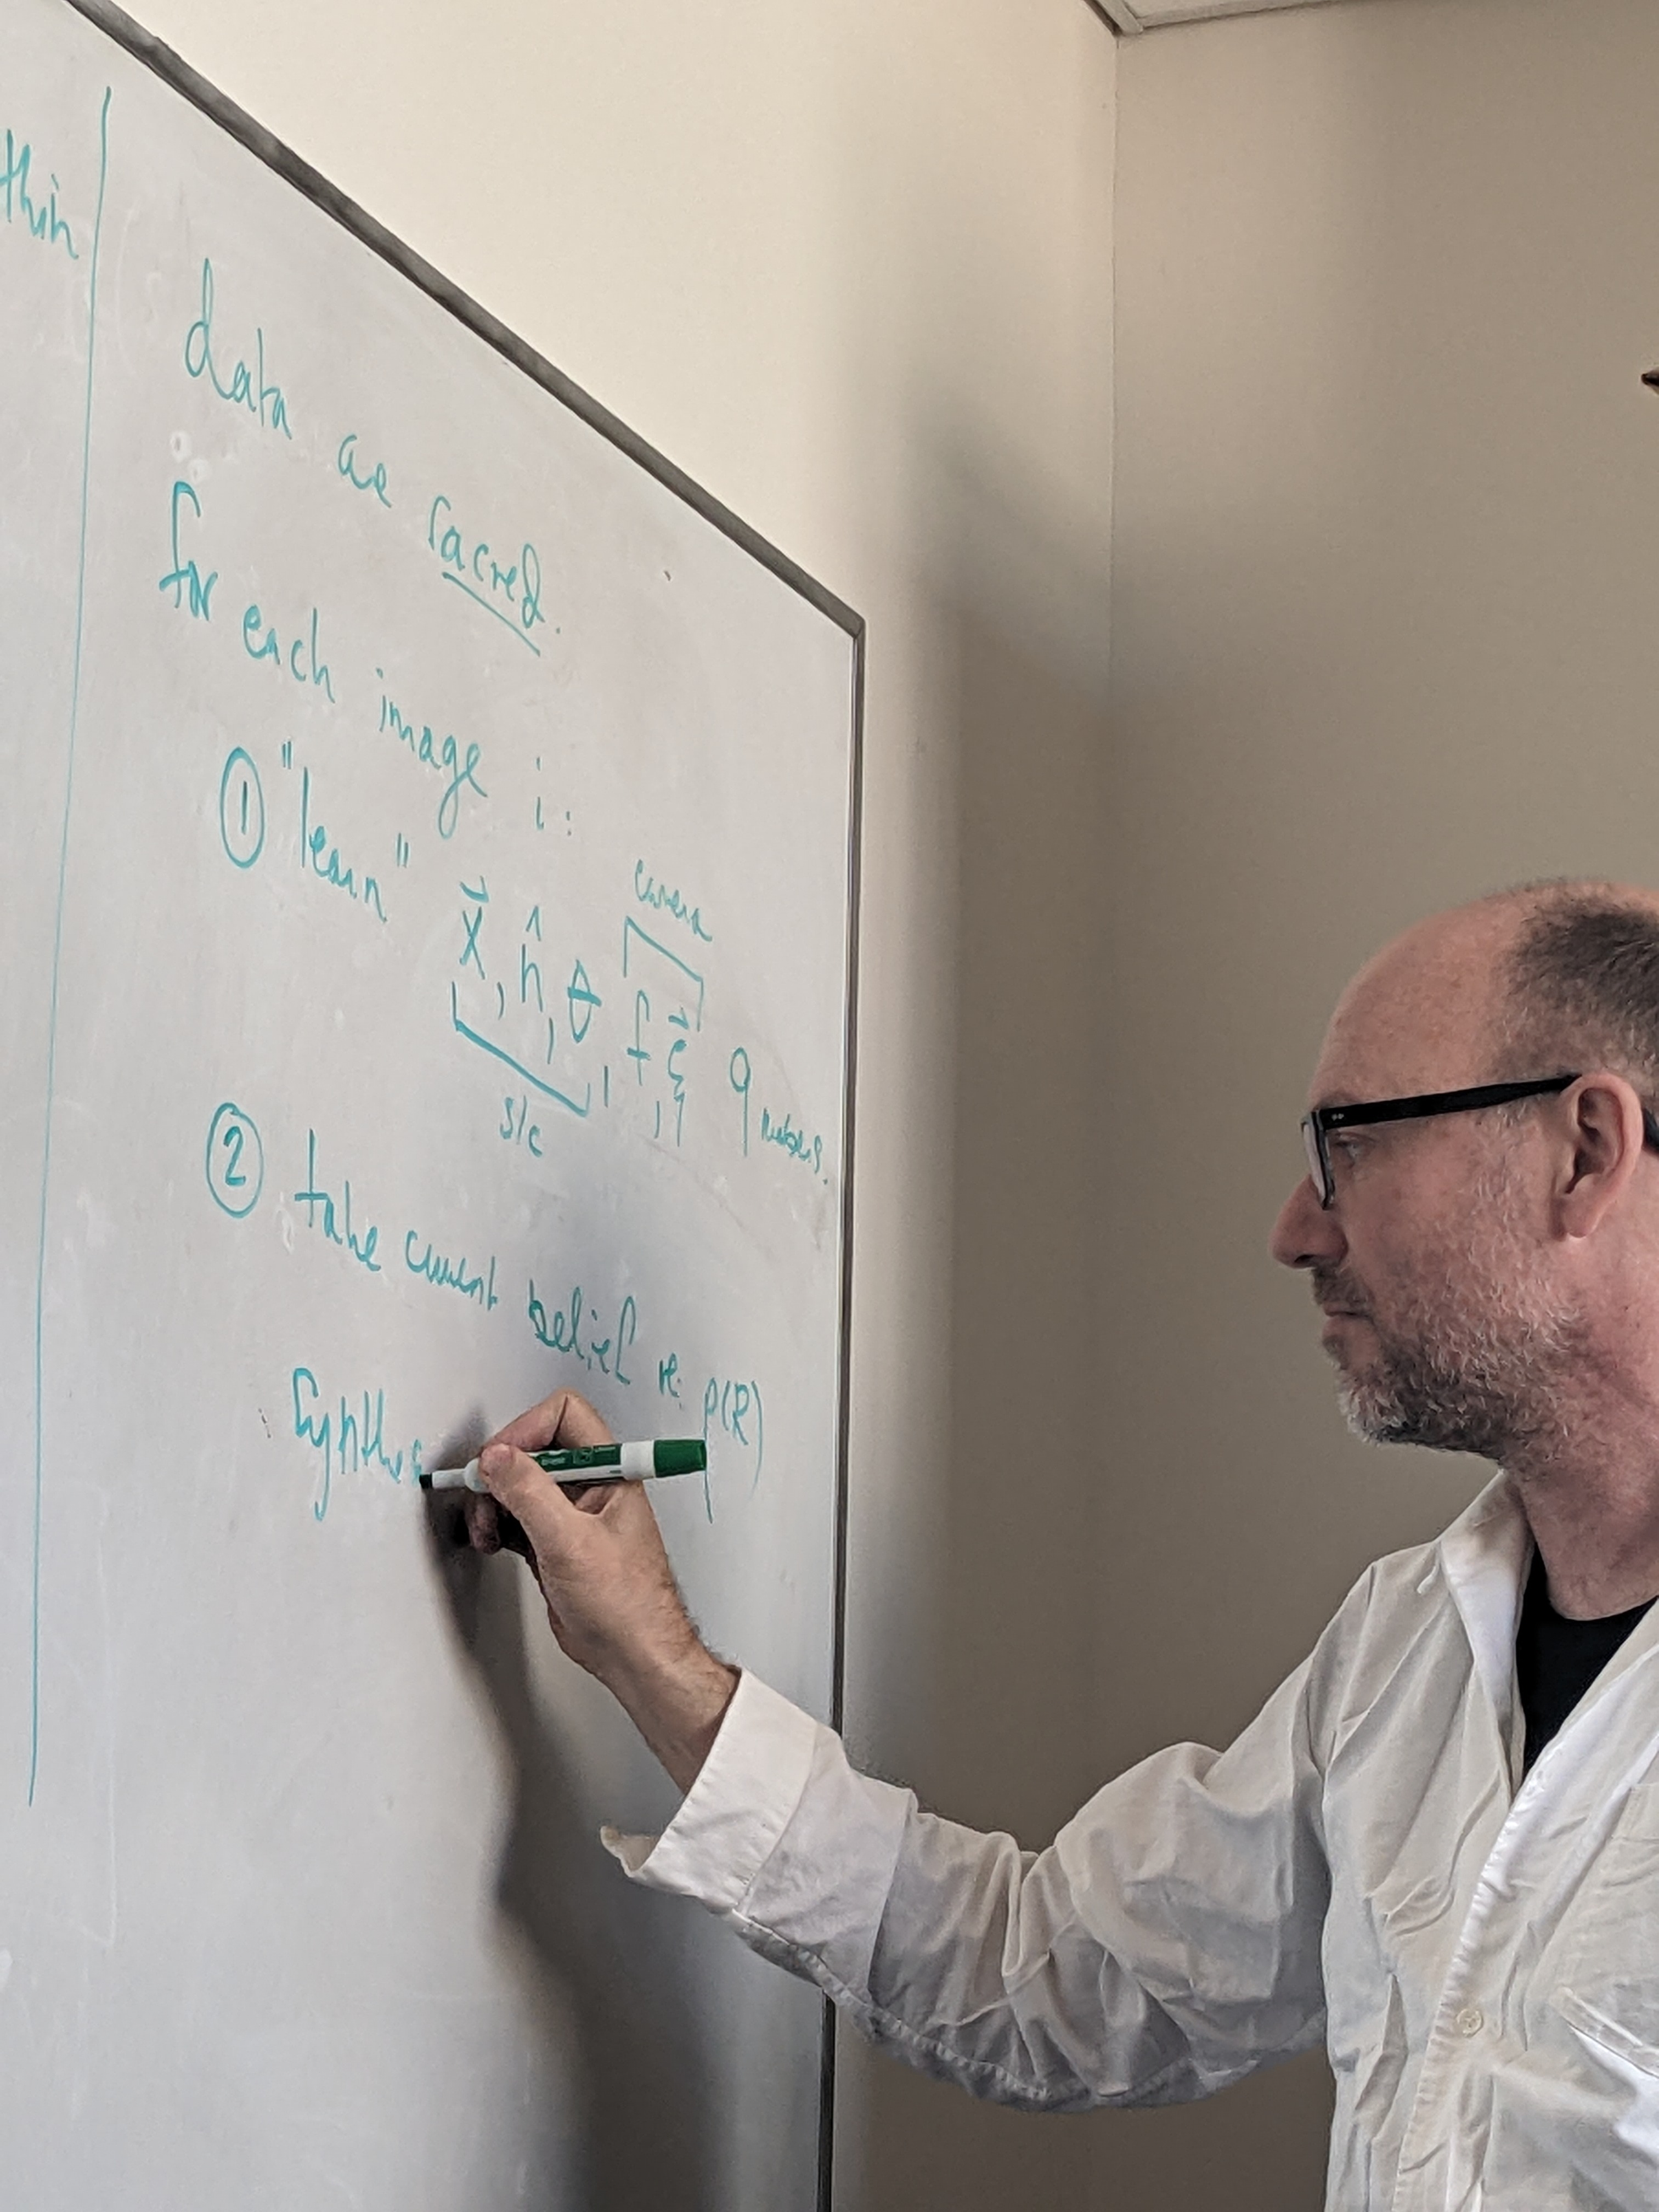 thin
data are sacred.
for each image i:
① "learn" x⃗, n̂, θ, f, ξ⃗ 9 numbers.
camera
s/c
② take current belief re: ρ(R)
Synthes